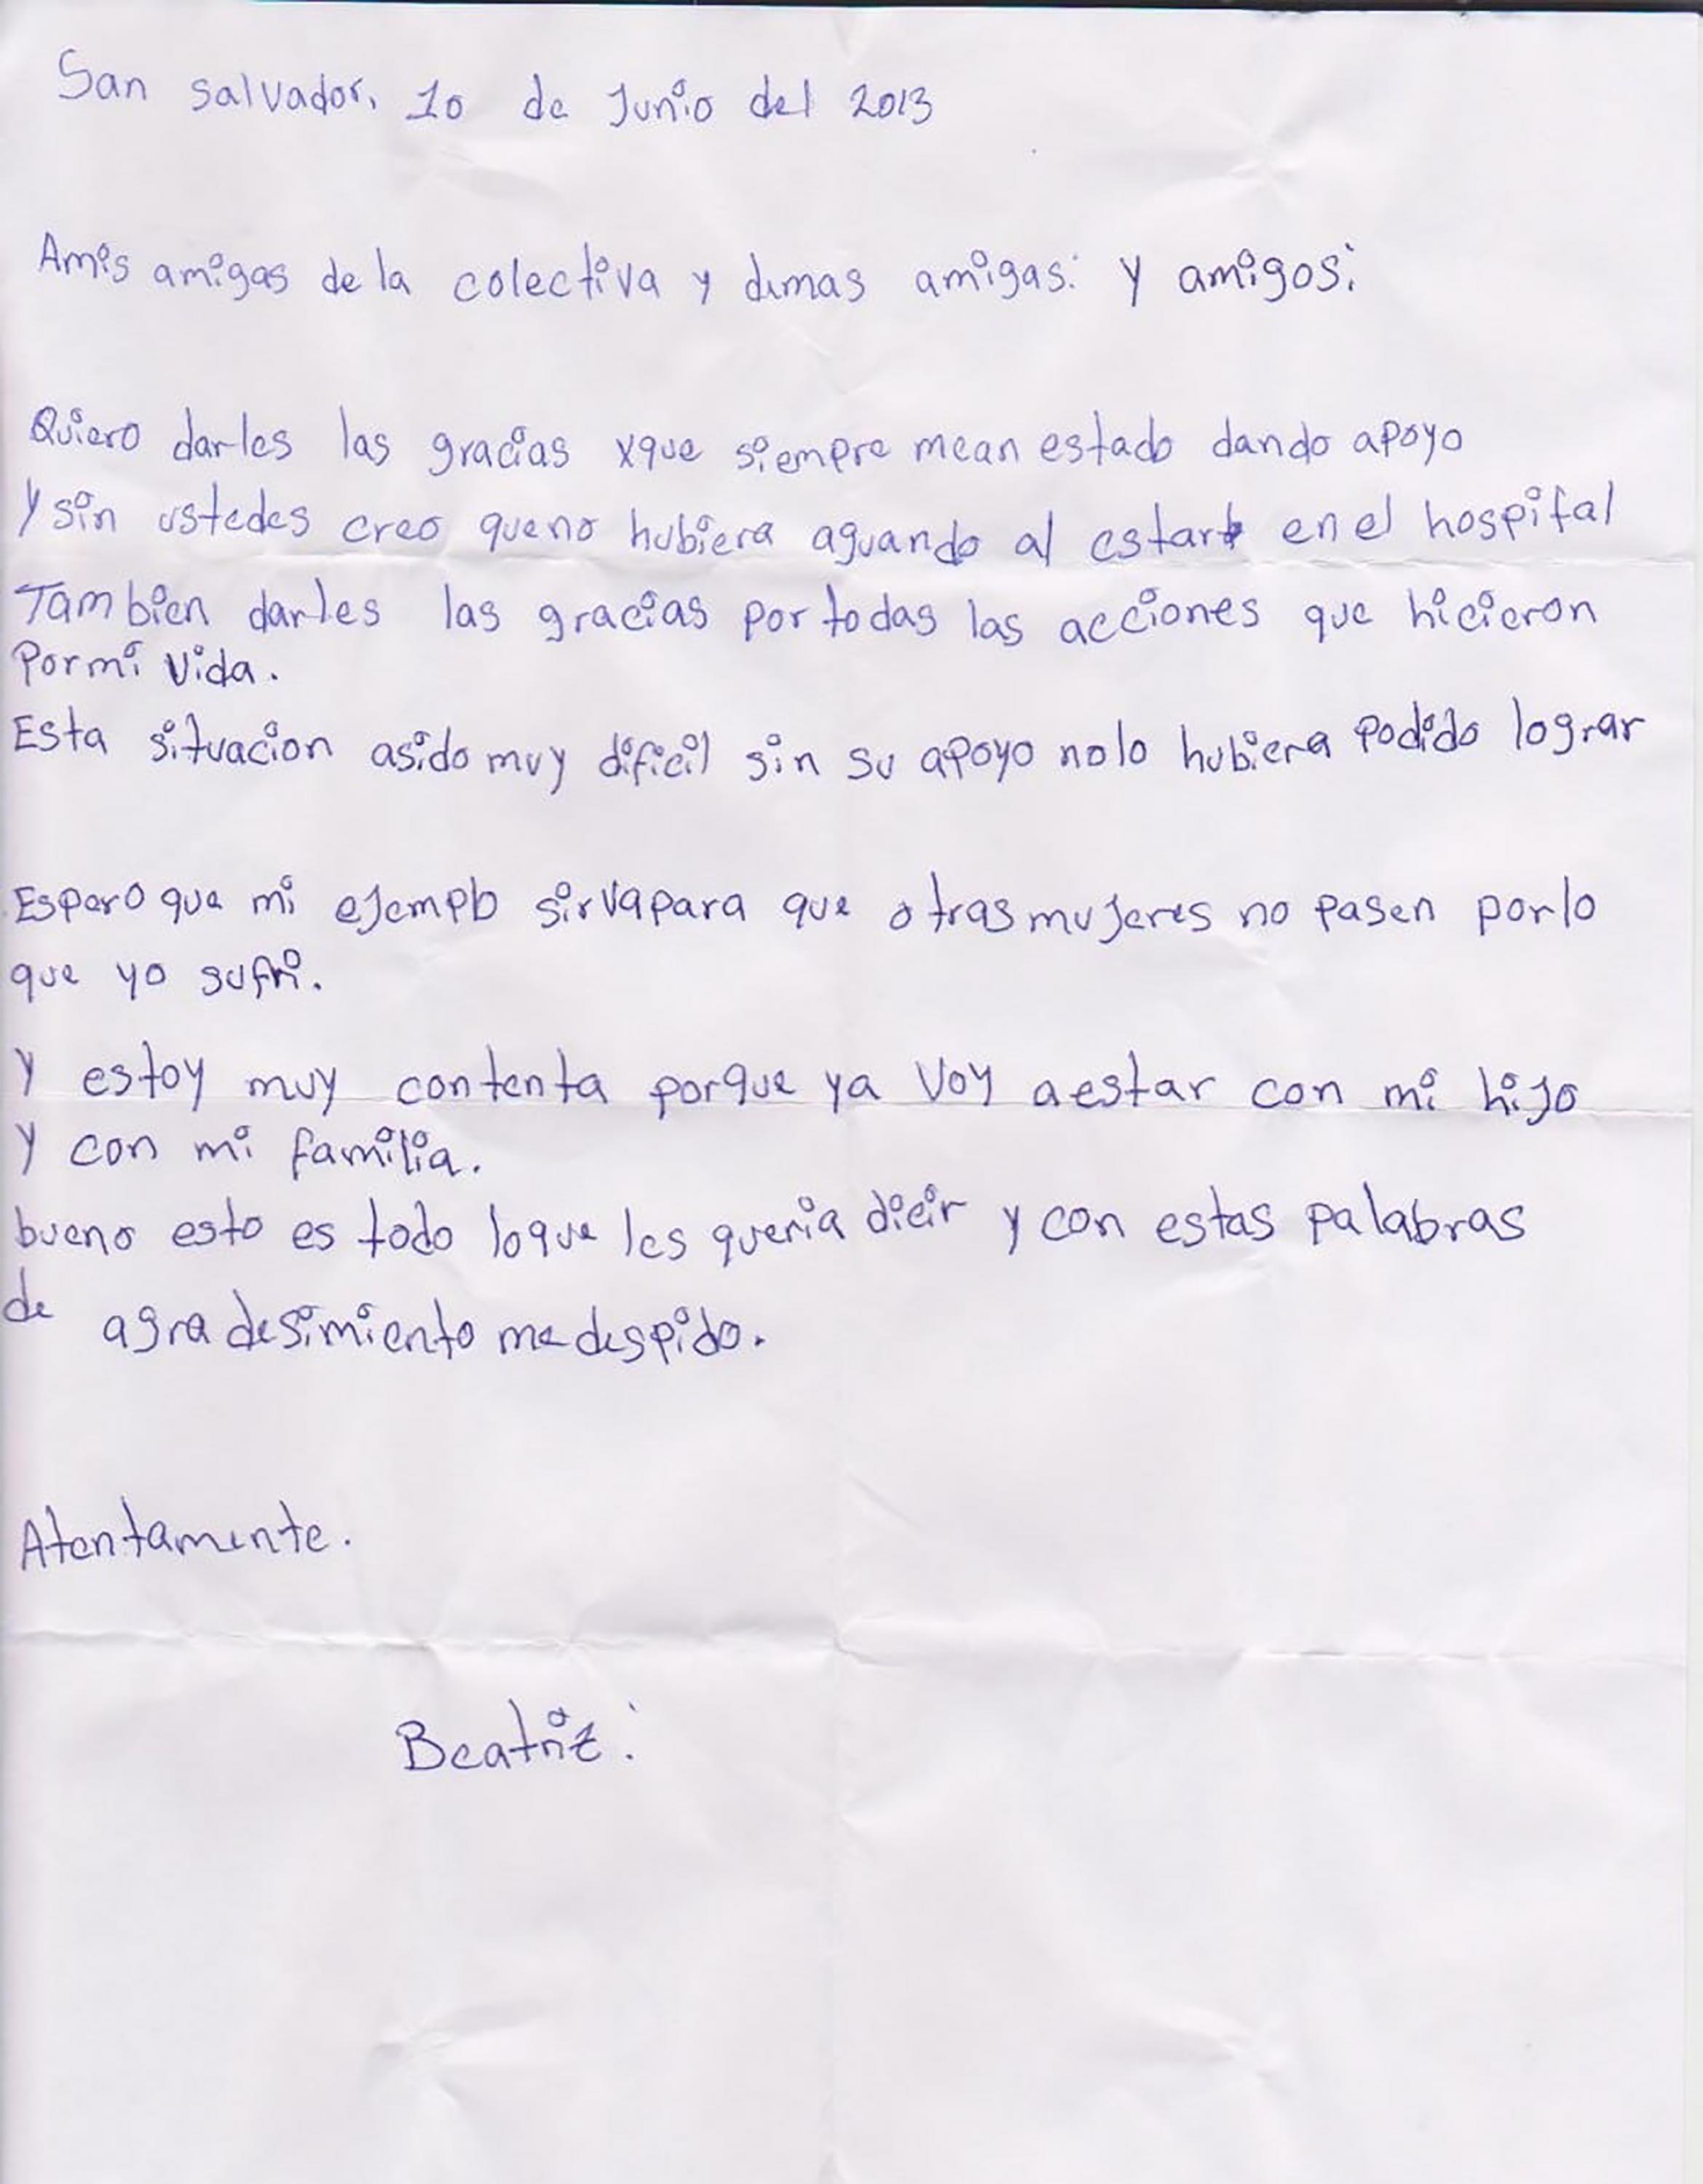 San salvador, 10 de Junio del 2013
Amis amigas de la colectiva y demas amigas: y amigos:
Quiero darles las gracias xque siempre mean estado dando apoyo
Y sin ustedes creo queno hubiera aguando al estar en el hospital
Tambien darles las gracias por todas las acciones que hicieron
Pormi vida.
Esta situacion asido muy dificil sin su apoyo nolo hubiera podido lograr
Espero que mi ejemplo sirvapara que otras mujeres no pasen porlo
que yo sufri.
Y estoy muy contenta porque ya voy aestar con mi hijo
Y con mi familia.
bueno esto es todo loque les queria dicir y con estas palabras
de agradesimiento me despido.
Atentamente.
Beatriz: